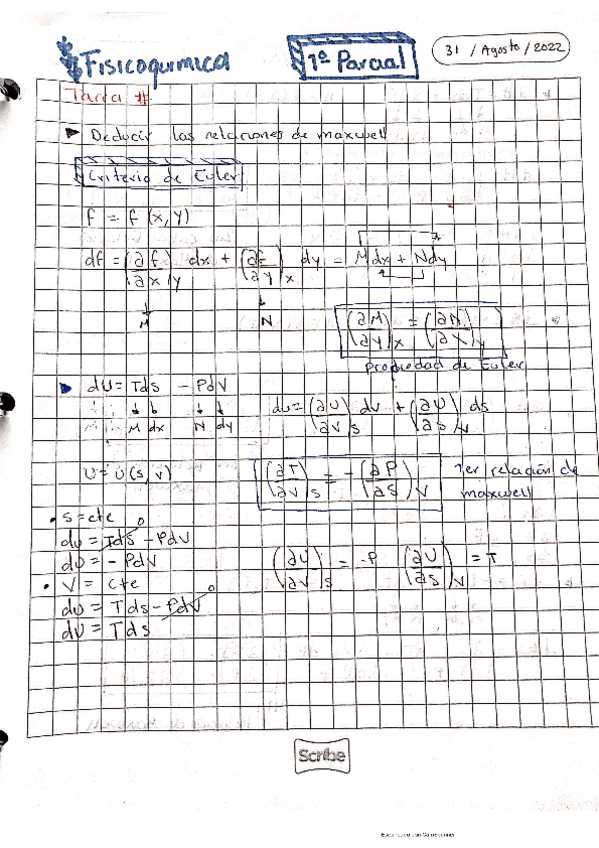 Fisicoquimica
1º Parcial
31 / Agosto / 2022
Tarea #
Deducir las relaciones de maxwell
Criterio de Euler
f = f (x, y)
df = (∂f/∂x)y dx + (∂f/∂y)x dy = Mdx + Ndy
M N
(∂M/∂y)x = (∂N/∂x)y
propiedad de Euler
dU = Tds - PdV
du = (∂U/∂V)s dv + (∂U/∂s)v ds
M dx N dy
U = U (s, v)
(∂T/∂V)s = - (∂P/∂S)V
1er relación de maxwell
• S = cte
du = Tds - PdV 0
du = - PdV
(∂U/∂V)s = -P (∂U/∂S)V = T
• V = cte
du = Tds - PdV 0
dU = Tds
Scribe
Escaneado con CamScanner